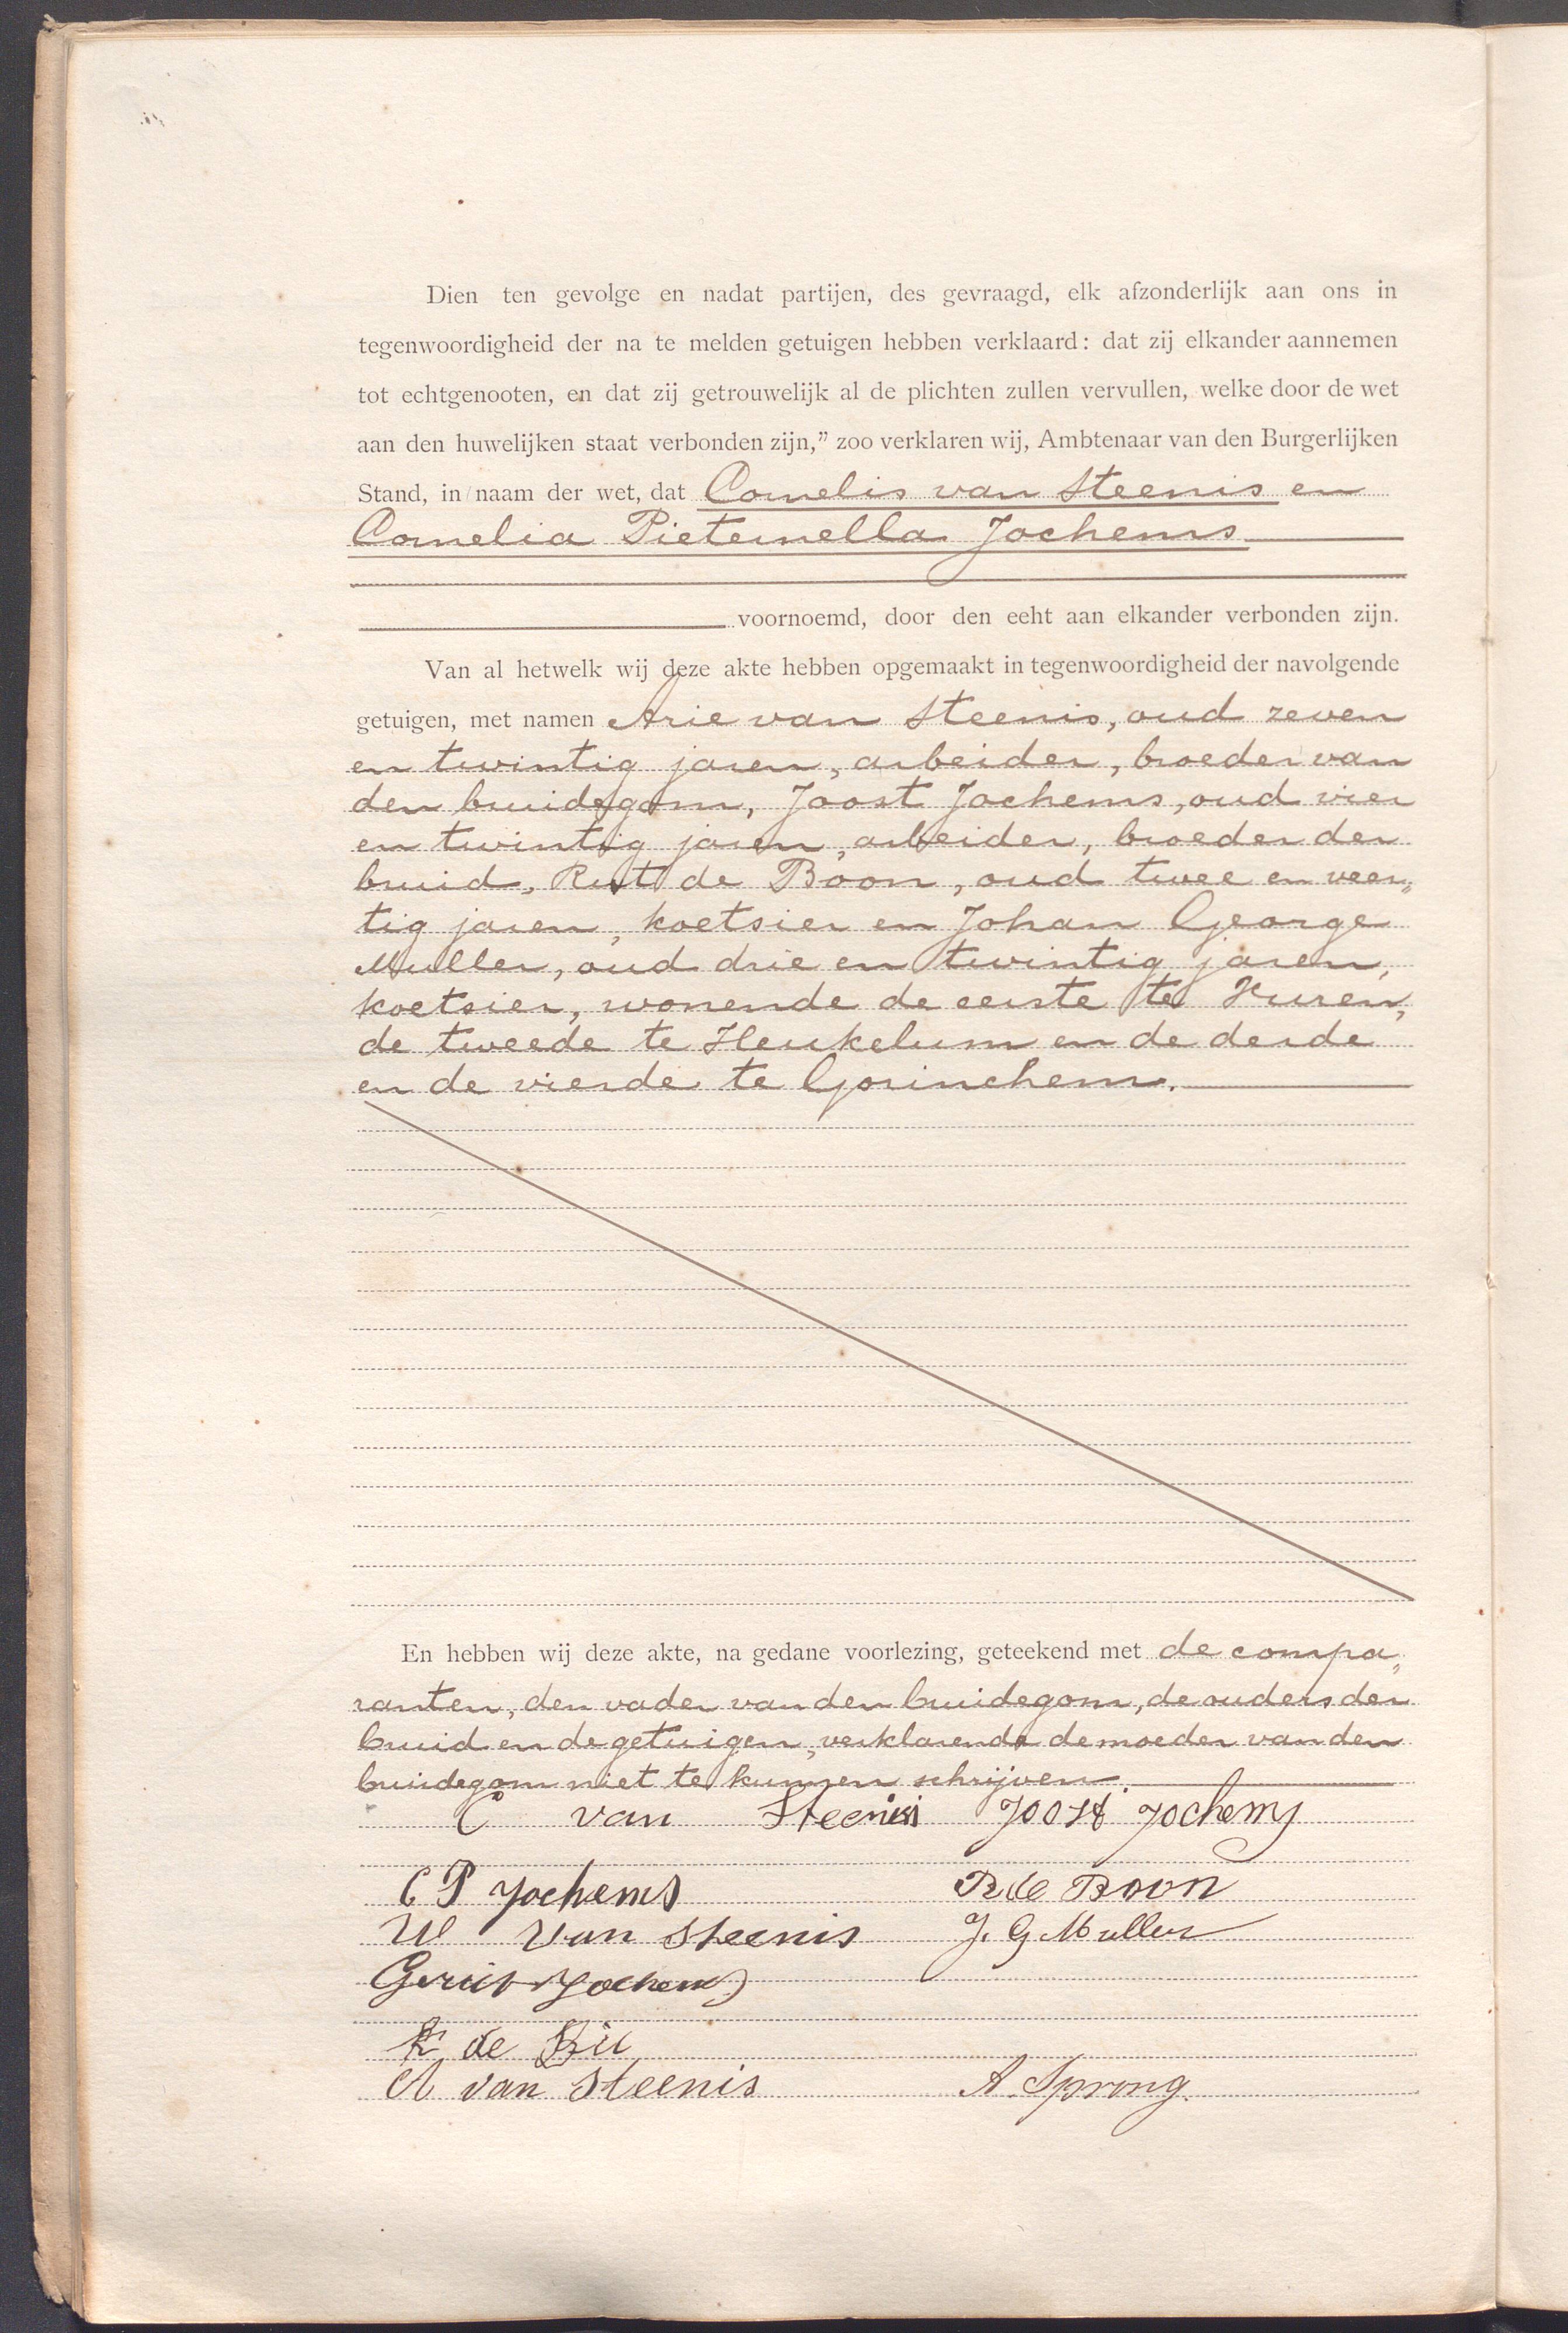 Dien ten gevolge en nadat partijen, des gevraagd, elk afzonderlijk aan ons in
tegenwoordigheid der na te melden getuigen hebben verklaard: dat zij elkander aannemen
tot echtgenooten, en dat zij getrouwelijk al de plichten zullen vervullen, welke door de wet
aan den huwelijken staat verbonden zijn,” zoo verklaren wij, Ambtenaar van den Burgerlijken
Stand, in naam der wet, dat Cornelis van Steenis en
Cornelia Pieternella Jochems
voornoemd, door den echt aan elkander verbonden zijn.
Van al hetwelk wij deze akte hebben opgemaakt in tegenwoordigheid der navolgende
getuigen, met namen Arie van Steenis, oud zeven
en twintig jaren, arbeider, broeder van
den bruidegom, Joost Jochems, oud vier
en twintig jaren, arbeider, broeder der
bruid, Rut de Boon, oud twee en veer„
tig jaren, koetsier en Johan George
Muller, oud drie en twintig jaren,
koetsier, wonende de eerste te Vuren,
de tweede te Heukelum en de derde
en de vierde te Gorinchem.
En hebben wij deze akte, na gedane voorlezing, geteekend met de compa„
ranten, den vader van den bruidegom, de ouders der
bruid en de getuigen, verklarende de moeder van den
bruidegom niet te kunnen schrijven.
C van Steenis Joost Jochems
C P Jochems R de Boon
W van Steenis J. G Muller
Gerrit Jochems
de
A van Steenis A. Sprong.